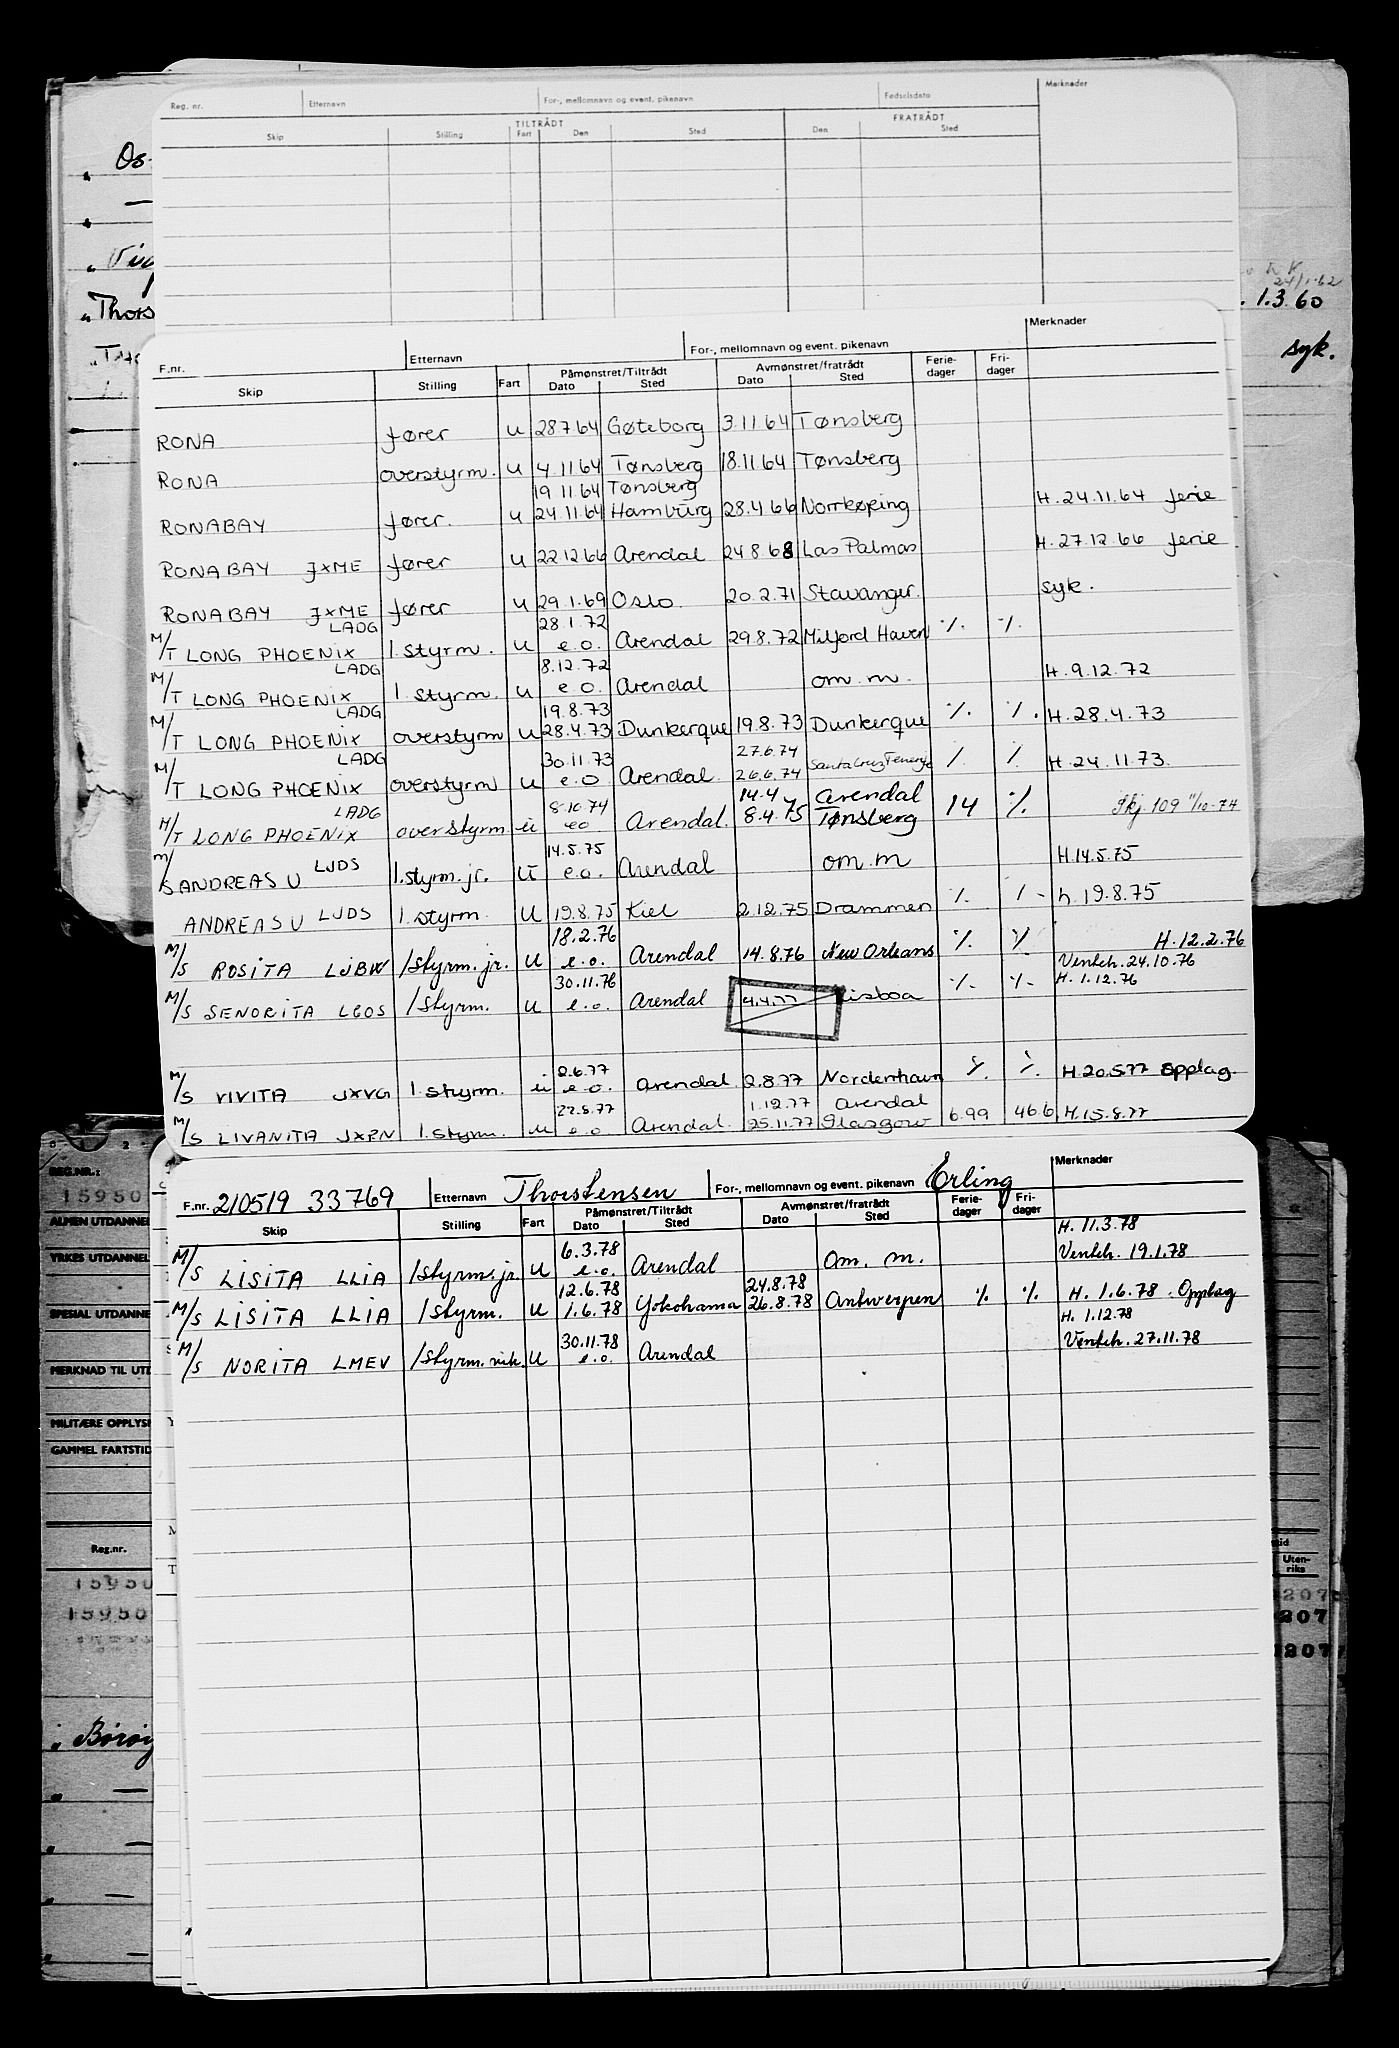 Reg. nr. Etternavn For-, mellomnavn og event. pikenavn Fødselsdato Merknader
TILTRÅDT FRATRÅDT
Skip Stilling Fart Den Sted Den Sted
Thors
1.3.60
syk.
F.nr. Etternavn For-, mellomnavn og event. pikenavn Merknader
Skip Stilling Fart Påmønstret/Tiltrådt Avmønstret/fratrådt Ferie-dager Fri-dager
Dato Sted Dato Sted
RONA fører u 28.7.64 Gøteborg 3.11.64 Tønsberg
RONA overstyrm. u 4.11.64 Tønsberg 18.11.64 Tønsberg
19.11.64 Tønsberg
RONABAY fører. u 24.11.64 Hamburg 28.4.66 Norrkøping H. 24.11.64 ferie
RONABAY JXME fører u 22.12.66 Arendal 24.8.68 Las Palmas H. 27.12.66 ferie
RONABAY JXME fører u 29.1.69 Oslo 20.2.71 Stavanger. syk.
LADG 28.1.72
M/T LONG PHOENIX 1.styrm. u e.o. Arendal 29.8.72 Milford Haven ./. ./.
LADG 8.12.72
M/T LONG PHOENIX 1. styrm. u e.o. Arendal om.m. H. 9.12.72
LADG 19.8.73
M/T LONG PHOENIX overstyrm u 28.4.73 Dunkerque 19.8.73 Dunkerque ./. ./. H. 28.4.73
LADG 30.11.73 27.6.74
M/T LONG PHOENIX overstyrm u e.o Arendal. 26.6.74 Santa Cruz Tenerife ./. ./. H. 24.11.73.
LADG 8.10.74 14.4 Arendal
M/T LONG PHOENIX overstyrm. u eo Arendal. 8.4.75 Tønsberg 14 ./. Skj. 109 11/10-74
LJDS 14.5.75
M/S ANDREAS U 1.styrm.jr. U e.o. Arendal om.m H.14.5.75
ANDREAS U LJDS 1.styrm. U 19.8.75 Kiel 2.12.75 Drammen ./. ./. h. 19.8.75
18.2.76 H. 12.2.76
M/S ROSITA LJBW 1styrm.jr. U e.o. Arendal 14.8.76 New Orleans ./. ./. Venteh. 24.10.76
30.11.76 H. 1.12.76
M/S SENORITA LGOS 1styrm. U e.o. Arendal 4.4.77 Lisboa ./. ./.
2.6.77
M/S VIVITA JXVG 1.styrm. u e.o. Arendal 2.8.77 Nordenham ./. ./. H.20.5.77 Opplag.
22.8.77 1.12.77 Arendal
M/S LIVANITA JXPN 1.styrm. u e.o Arendal. 25.11.77 Glasgow 6.99 46.6 H.15.8.77
F.nr. 210519 33769 Etternavn Thorstensen For-, mellomnavn og event. pikenavn Erling Merknader
Skip Stilling Fart Påmønstret/Tiltrådt Avmønstret/fratrådt Ferie-dager Fri-dager
Dato Sted Dato Sted
6.3.78 H. 11.3.78
M/S LISITA LLIA 1styrms.jr. U e.o. Arendal om. m. Venteh. 19.1.78
12.6.78 24.8.78
M/S LISITA LLIA 1styrm. U 1.6.78 Yokohama 26.8.78 Antwerpen ./. ./. H. 1.6.78. Opplag
30.11.78 H. 1.12.78
M/S NORITA LMEV 1styrm.vik. U e.o. Arendal Venteh. 27.11.78
REG.NR.:
15950
ALMEN UTDANNEL
YRKES UTDANNEL
SPESIAL UTDANNE
MERKNAD TIL UTD
MILITÆRE OPPLYSN
GAMMEL FARTSTID
Reg.nr.
Uten-riks
15950 207
15950 207
207